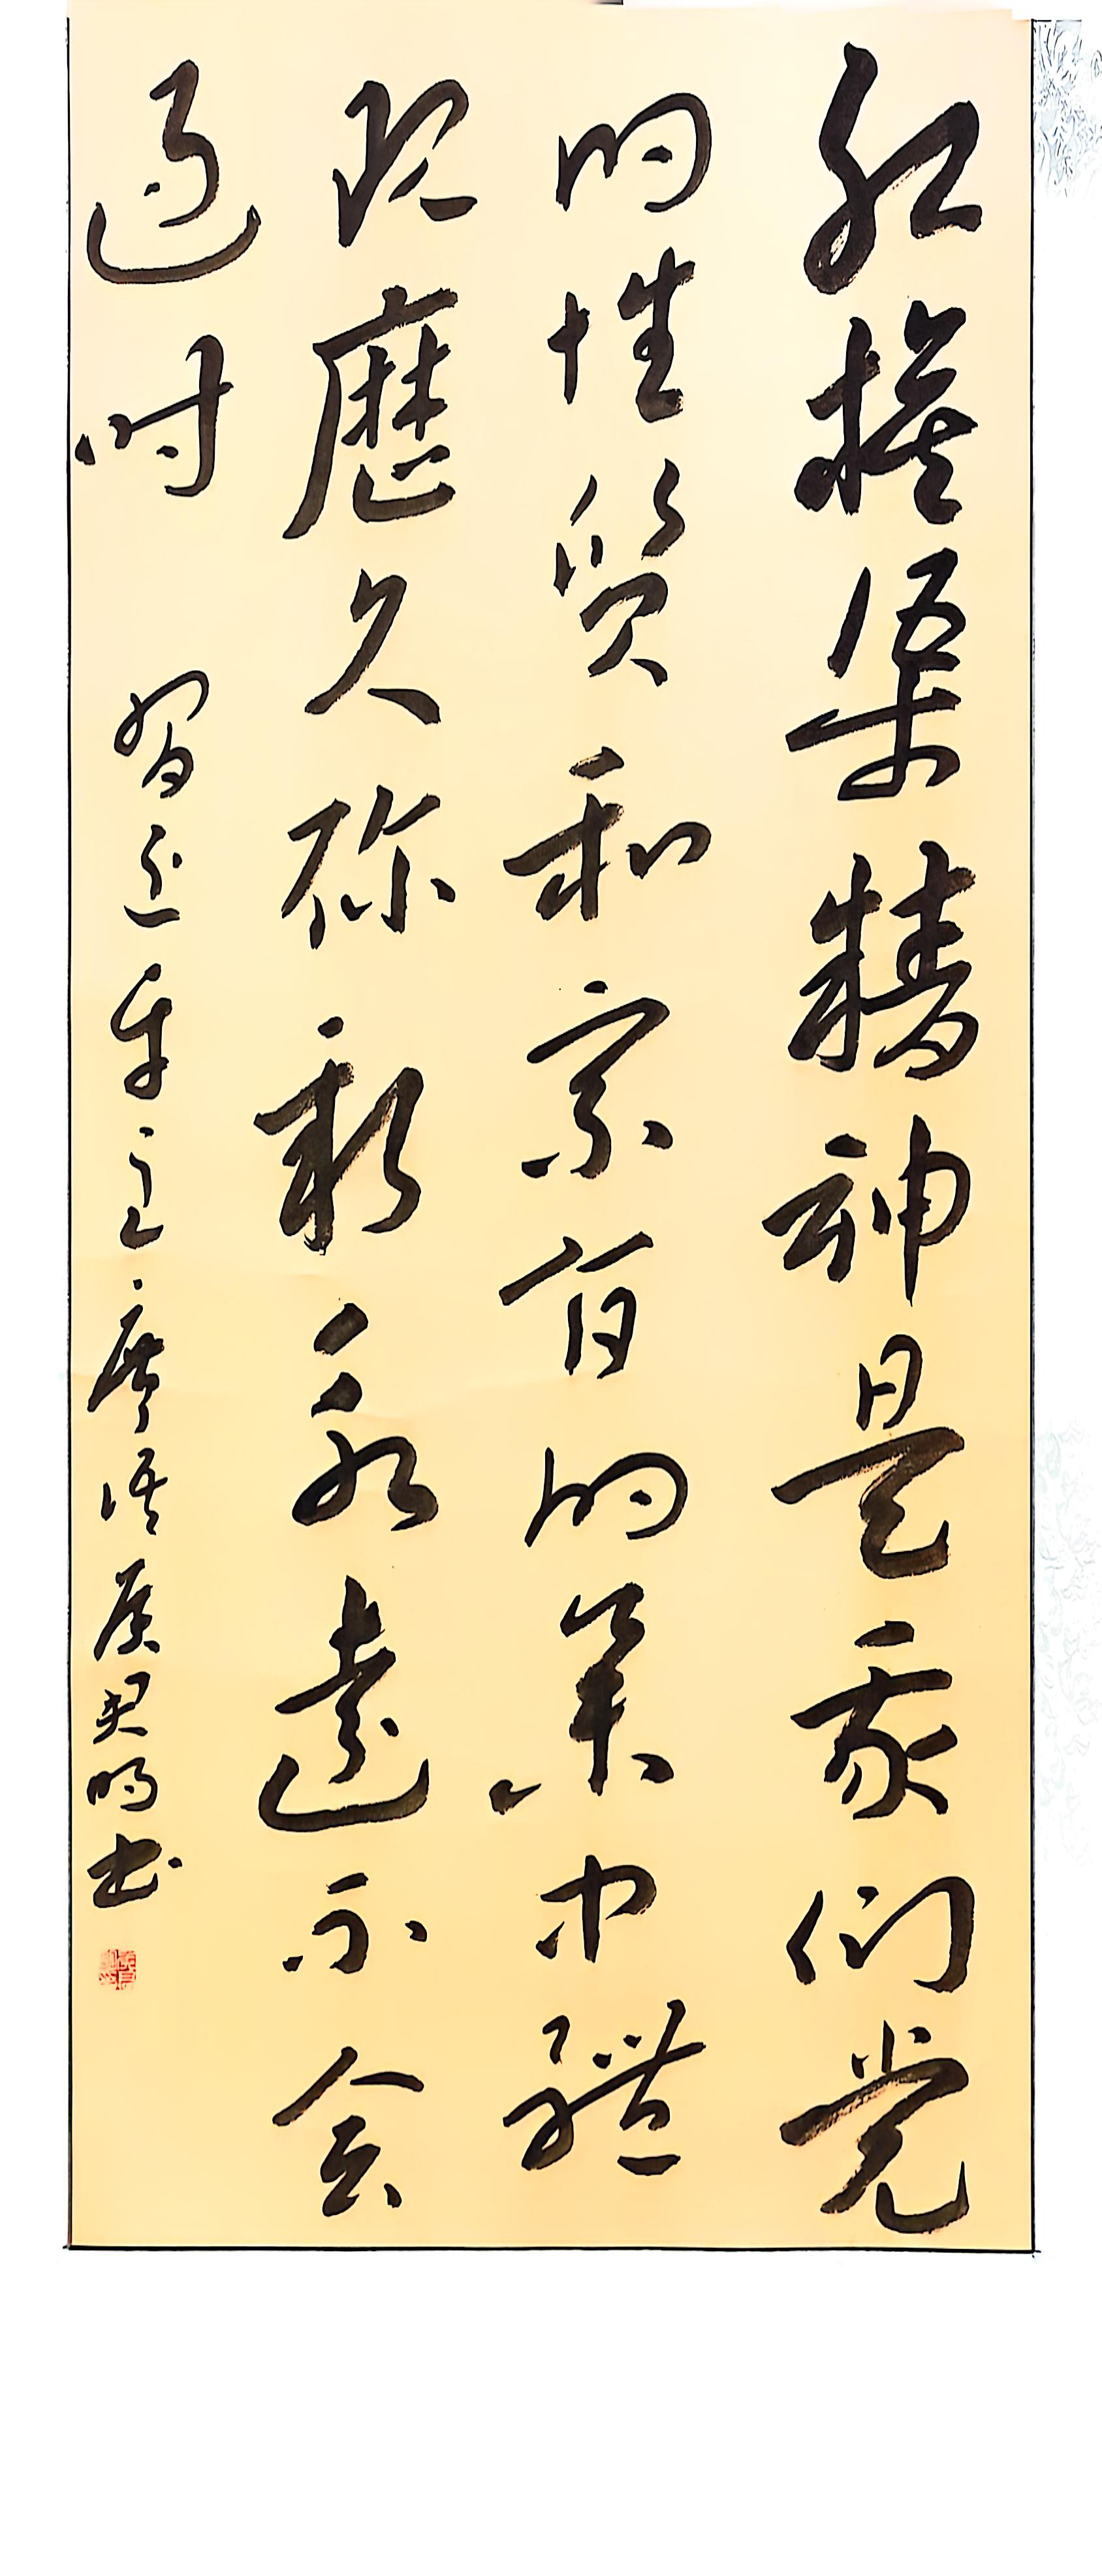 红旗渠精神是我们党
的性质和宗旨的集中體
现歷久弥新永远不会
过时 习近平主席语 侯君明书